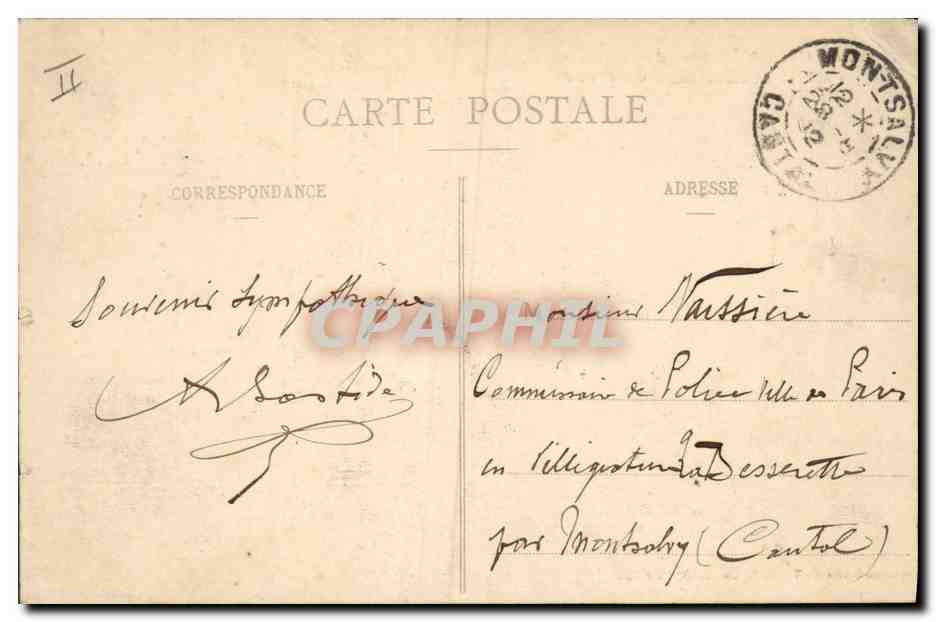 II
CARTE POSTALE
CORRESPONDANCE
ADRESSE
MONTSALVY
CANTAL
Souvenir sympathique
A Bastide
Monsieur Vaissière
Commissaire de Police Ville de Paris
en villégiature à Besserette
par Montsalvy (Cantal)
CPAPHIL